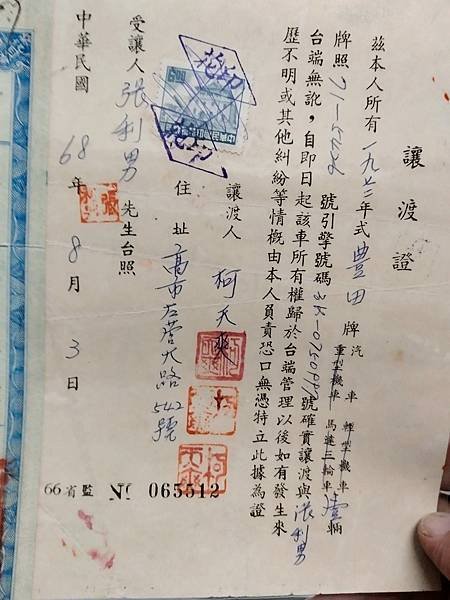 讓渡證
茲本人所有一九七三年式豐田牌汽車輕型機車壹輛
重型機車馬達三輪車
牌照71-
號引擎號碼2K-0750
號確實讓渡與張利男
台端無訛，自即日起該車所有權歸於台端管理以後如有發生來
歷不明或其他糾紛等情概由本人負責恐口無憑特立此據為證
讓渡人 柯天爽
住址 高市左營大路542號
受讓人 張利男 先生台照
中華民國68年8月3日
66省監 № 065512